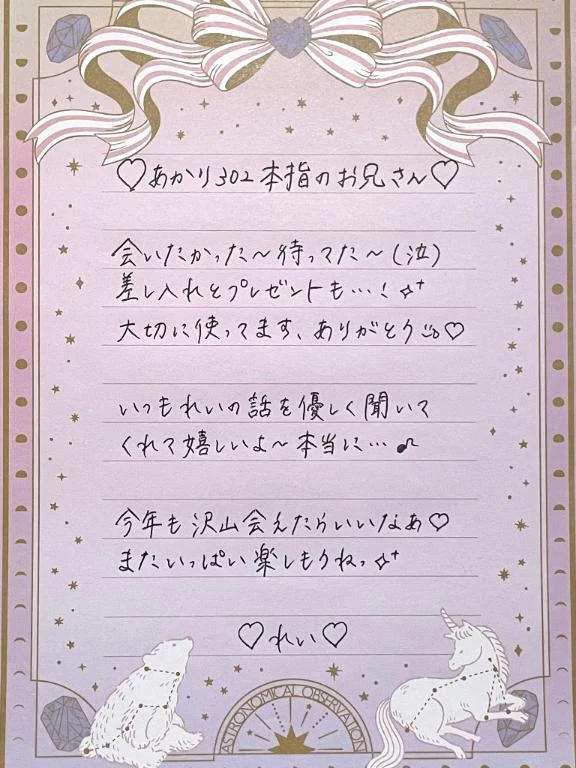 ♡あかり302本指のお兄さん♡
会いたかった〜待ってた〜(泣)
差し入れとプレゼントも…!✧⁺
大切に使ってます、ありがとう♡
いつもれいの話を優しく聞いて
くれて嬉しいよ〜本当に…♪
今年も沢山会えたらいいなあ♡
またいっぱい楽しもうねっ✧⁺
♡れい♡
ASTRONOMICAL OBSERVATION